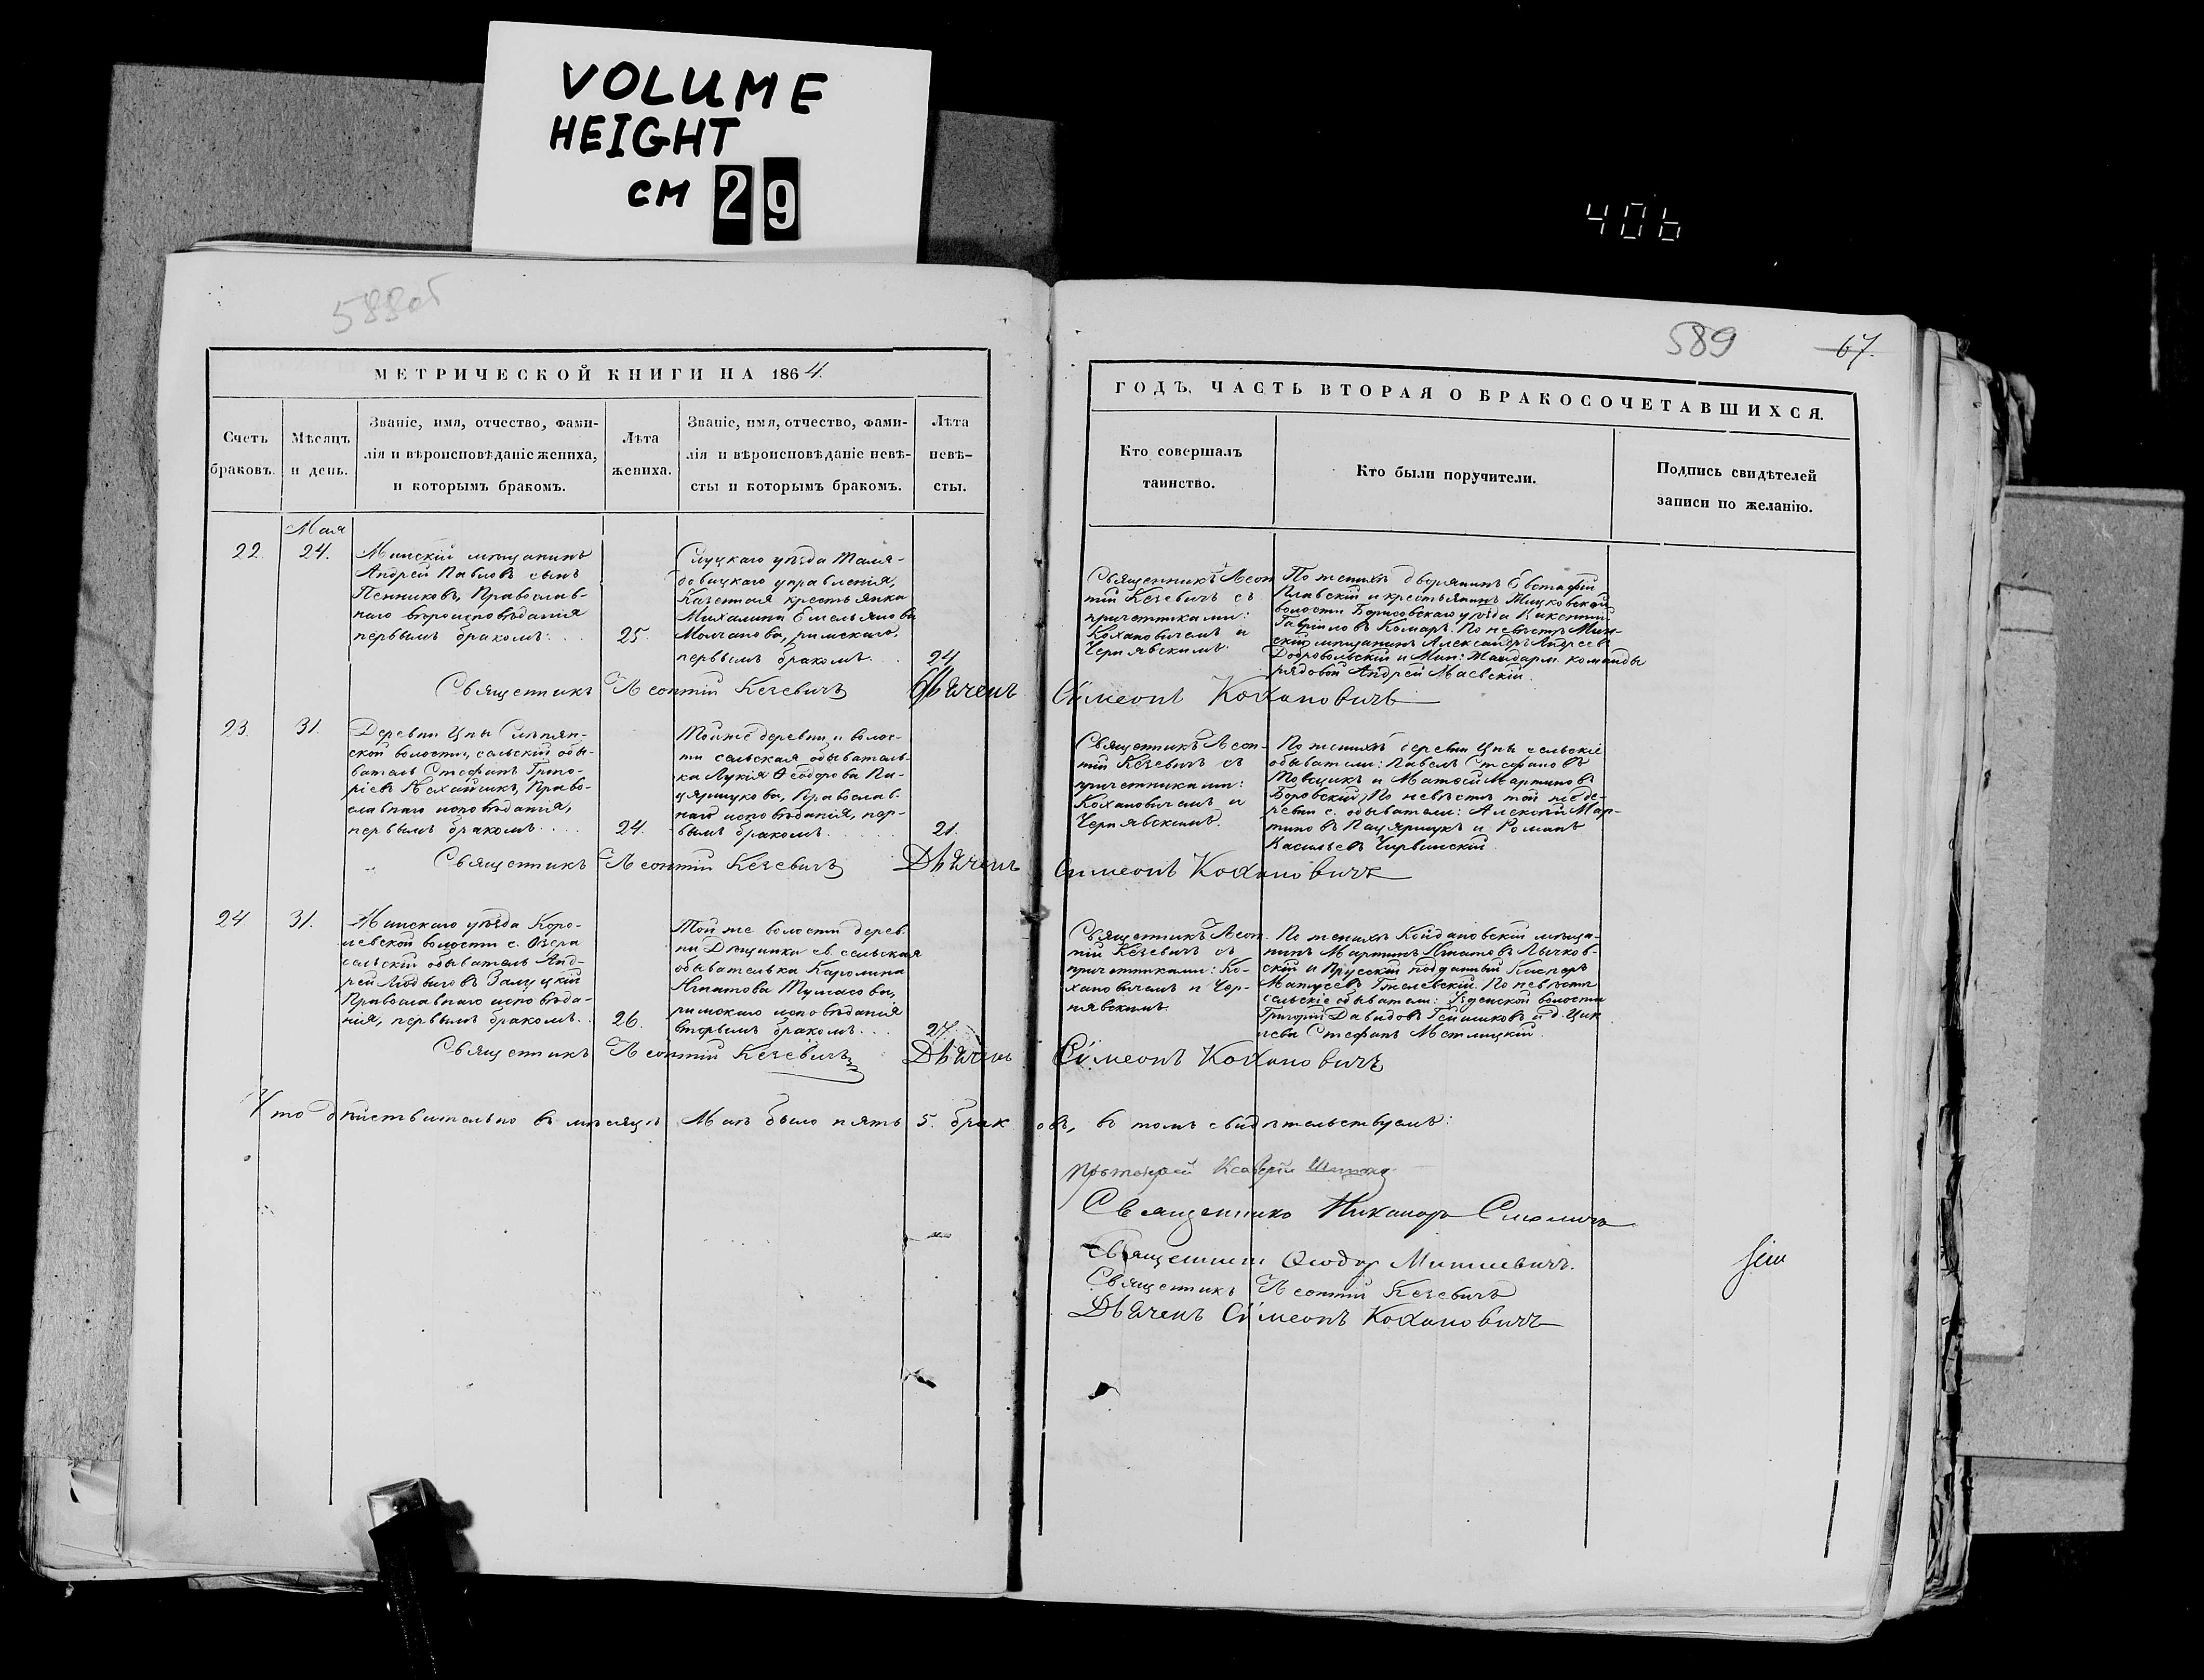 VOLUME
HEIGHT
CM 29
406
588об
589
67.
МЕТРИЧЕСКОЙ КНИГИ НА 1864.
ГОДЪ, ЧАСТЬ ВТОРАЯ О БРАКОСОЧЕТАВШИХСЯ.
Счетъ
браковъ.
Мѣсяцъ
и день.
Званіе, имя, отчество, фами-
лія и вѣроисповѣданіе жениха,
и которымъ бракомъ.
Лѣта
жениха.
Званіе, имя, отчество, фами-
лія и вѣроисповѣданіе невѣ-
сты и которымъ бракомъ.
Лѣта
невѣ-
сты.
Кто совершалъ
таинство.
Кто были поручители.
Подпись свидѣтелей
записи по желанію.
Мая
22.
24.
Минскій мѣщанинъ
Андрей Павловъ сынъ
Пенниковъ, Православ-
наго вѣроисповѣданія
первымъ бракомъ:
25.
Слуцкаго уѣзда
управленія,
Казенная крестьянка
Михалина Емельянова
Молчанова, римскаго,
первымъ бракомъ.
24
Священникъ Леон
тій Кезевичъ съ
причетниками:
Кохановичемъ и
Чернявскимъ.
По женихѣ дворянинъ Евстафій
Плавскій и крестьянинъ
волости Борисовскаго уѣзда Викентій
Гавріиловъ Комаръ. По невѣстѣ Мин-
скій мѣщанинъ Александръ Андреевъ
Добровольскій и Мин: Жандарм. команды
рядовой Андрей Маевскій.
Священникъ Леонтій Кезевичъ Дьяченъ Симеонъ Кохановичъ
23.
31.
Деревни Цны Слѣпян-
ской волости, сельскій обы-
ватель Стефанъ Григо-
ріевъ Православ-
славнаго исповѣданія,
первымъ бракомъ....
24.
Той же деревни и волос-
ти сельская обыватель-
ка Лукія Ѳеодорова Па-
цярнукова, Православ-
наго исповѣданія, пер-
вымъ бракомъ.
21.
Священникъ Леон-
тій Кезевичъ съ
причетниками:
Кохановичемъ и
Чернявскимъ.
По женихѣ деревни Цнѣ сельскіе
обыватели: Павелъ Стефановъ
и Матвей Мартиновъ
Боровскій, По невѣстѣ той же де-
ревни с. обыватели: Алексѣй Мар-
тиновъ и Романъ
Васильевъ Чирвинскій.
Священникъ Леонтій Кезевичъ Дьяченъ Симеонъ Кохановичъ
24
31.
Минскаго уѣзда Коро-
левской волости с. Озера
сельскій обыватель Анд-
рей Людвиговъ Залуцкій
Православнаго исповѣда-
нія, первымъ бракомъ..
26.
Той же волости дерев
ни сельская
обывателька Каролина
Игнатова Тумасова,
римскаго исповѣданія
вторымъ бракомъ...
27.
Священникъ Леон.
тій Кезевичъ съ
причетниками: Ко-
хановичемъ и Чер-
нявскимъ.
По женихѣ Койдановскій мѣща-
нинъ Мартинъ Игнатовъ Лычков-
скій и Прусскій подданный Касперъ
Матусевъ По невѣстѣ
сельскіе обыватели: Узденской волости
Григорій Давидовъ и д. Цик
Стефанъ Метлицкій.
Священникъ Леонтій Кезевичъ Дьяченъ Симеонъ Кохановичъ
Что дѣйствительно въ мѣсяцѣ Маѣ было пять 5. браковъ, въ томъ свидѣтельствуемъ:
Протоіерей Ксаверій
Священникъ Никаноръ Смоличъ
Священникъ Ѳеодоръ
Священникъ Леонтій Кезевичъ
Дьяченъ Симеонъ Кохановичъ